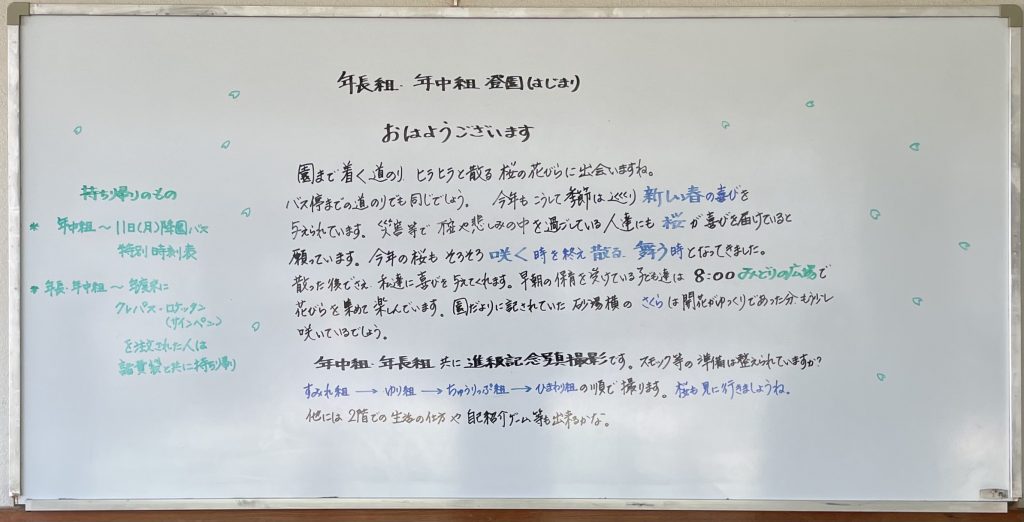 年長組・年中組 登園はじまり
おはようございます
園まで着く道のり、ヒラヒラと散る桜の花びらに出会いますね。
バス停までの道のりでも同じでしょう。 今年もこうして季節は巡り 新しい春の喜びを
与えられています。災害等で 不安や悲しみの中を過ごしている人達にも 桜が喜びを届けていると
願っています。今年の桜も そろそろ 咲く時を終え 散る、舞う時となってきました。
散った後でさえ 私達に喜びを与えてくれます。早朝の保育を受けている子ども達は 8:00 みどりの広場で
花びらを集めて楽しんでいます。園だよりに記されていた 砂場横の さくらは開花がゆっくりであった分、もう少し
咲いているでしょう。
年中組・年長組 共に 進級記念写真撮影です。スモック等の準備は整えられていますか?
すみれ組 → ゆり組 → ちゅうりっぷ組 → ひまわり組の順で 撮ります。桜も見に行きましょうね。
他には 2階での生活の仕方や 自己紹介ゲーム等も出来るかな。
持ち帰りのもの
* 年中組〜11日(月)降園バス
特別時刻表
* 年長・年中組〜年度末に
クレパス・ロケッタン
(サインペン)
を注文された人は
諸費袋と共に持ち帰り